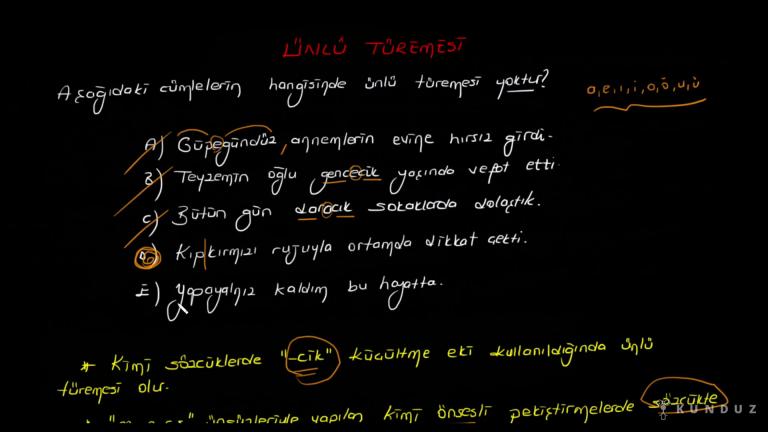 ÜNLÜ TÜREMESİ
Aşağıdaki cümlelerin hangisinde ünlü türemesi yoktur?
a, e, ı, i, o, ö, u, ü
A) Güpegündüz, annemlerin evine hırsız girdi.
B) Teyzemin oğlu gencecik yaşında vefat etti.
C) Bütün gün daracık sokaklarda dolaştık.
D) Kıpkırmızı rujuyla ortamda dikkat çekti.
E) Yapayalnız kaldım bu hayatta.
* Kimi sözcüklerde "-cik" küçültme eki kullanıldığında ünlü
türemesi olur.
ünsüzleriyle yapılan kimi önsesli pekiştirmelerde sözcükte
KUNDUZ